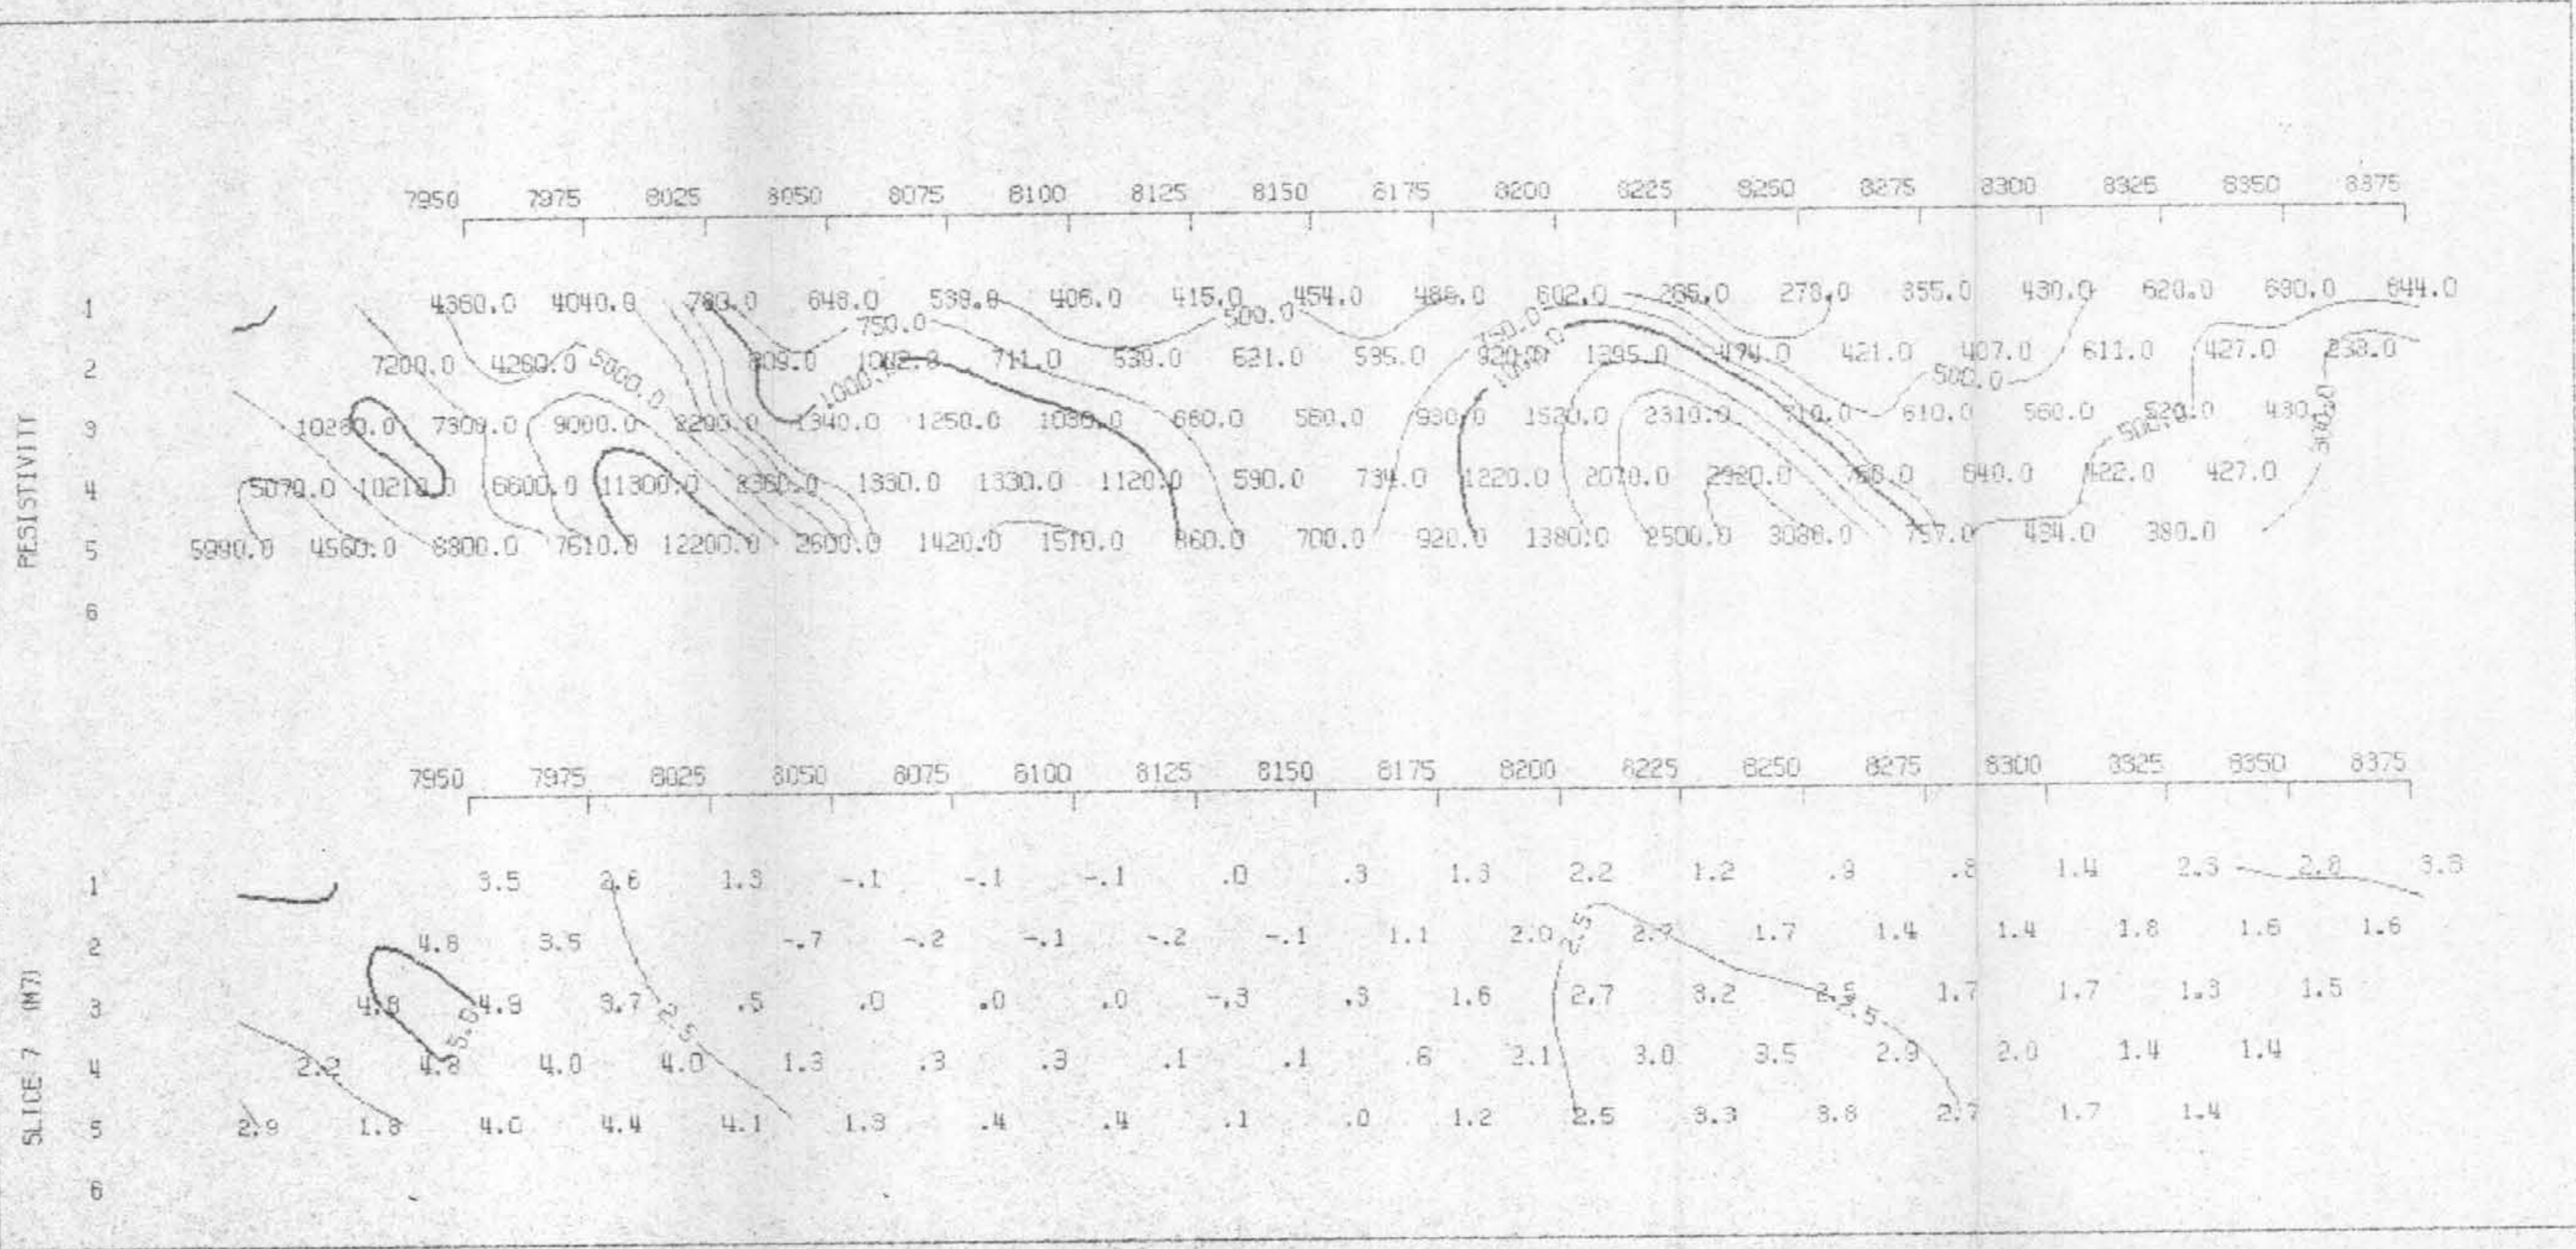 7950 7975 8025 8050 8075 8100 8125 8150 8175 8200 8225 8250 8275 8300 8325 8350 8375
1 4360.0 4040.0 780.0 648.0 539.0 406.0 415.0 454.0 488.0 602.0 265.0 278.0 355.0 430.0 620.0 690.0 644.0
750.0 500.0 750.0
2 7200.0 4280.0 5000.0 809.0 1042.0 711.0 539.0 621.0 595.0 920.0 1295.0 474.0 421.0 407.0 611.0 427.0 293.0
1000.0 1000.0 500.0
3 10260.0 7300.0 9000.0 2200.0 1340.0 1250.0 1030.0 660.0 560.0 930.0 1520.0 2310.0 710.0 610.0 560.0 520.0 430.0
500.0 300.0
4 5070.0 10210.0 6600.0 11300.0 2360.0 1330.0 1330.0 1120.0 590.0 734.0 1220.0 2070.0 2920.0 768.0 640.0 422.0 427.0
5 5990.0 4560.0 8800.0 7610.0 12200.0 2600.0 1420.0 1510.0 860.0 700.0 920.0 1380.0 2500.0 3088.0 757.0 434.0 380.0
6
RESISTIVITY
7950 7975 8025 8050 8075 8100 8125 8150 8175 8200 8225 8250 8275 8300 8325 8350 8375
1 3.5 2.6 1.3 -.1 -.1 -.1 .0 .3 1.3 2.2 1.2 .9 .8 1.4 2.3 2.8 3.3
2 4.8 3.5 -.7 -.2 -.1 -.2 -.1 1.1 2.0 2.5 2.7 1.7 1.4 1.4 1.8 1.6 1.6
3 4.8 4.9 3.7 .5 .0 .0 .0 -.3 .3 1.6 2.7 3.2 2.5 1.7 1.7 1.3 1.5
5.0 2.5 2.5
4 2.2 4.8 4.0 4.0 1.3 .3 .3 .1 .1 .6 2.1 3.0 3.5 2.9 2.0 1.4 1.4
5 2.9 1.8 4.0 4.4 4.1 1.3 .4 .4 .1 .0 1.2 2.5 3.3 3.8 2.7 1.7 1.4
6
SLICE 7 (M7)